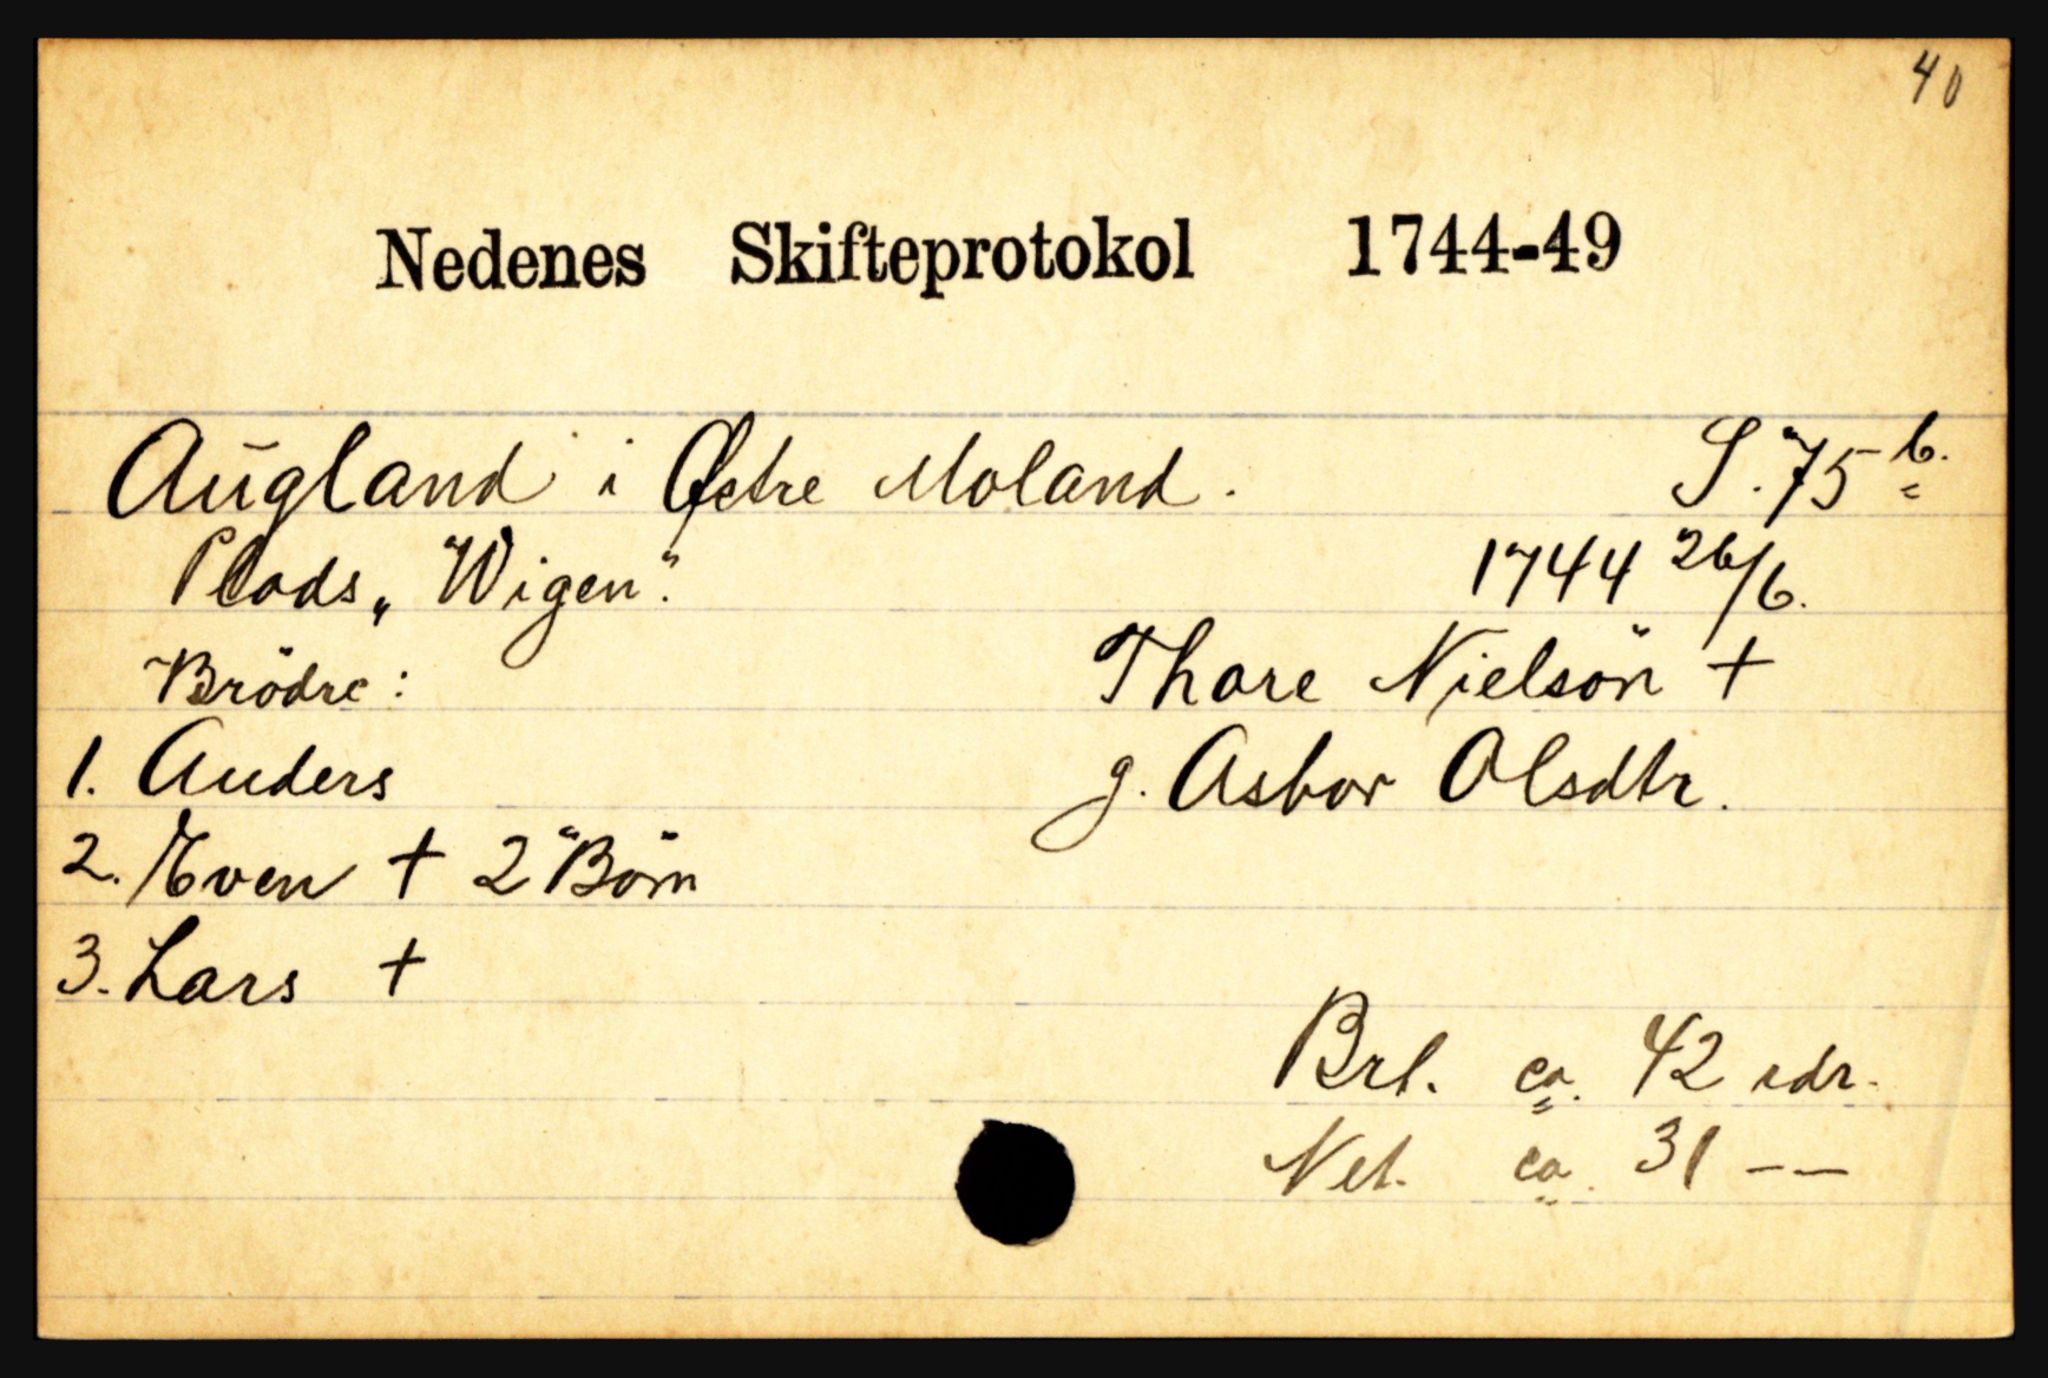 40
Nedenes Skifteprotokol 1744-49
Augland i Østre Moland. S. 75 b.
Plads „Wigen". 1744 26/6.
Brödre: Thore Nielsön †
1. Anders g. Asbor Olsdtr.
2. Even † 2 Börn
3. Lars †
Brt. ca. 42 rdr.
Net. ca. 31 — —